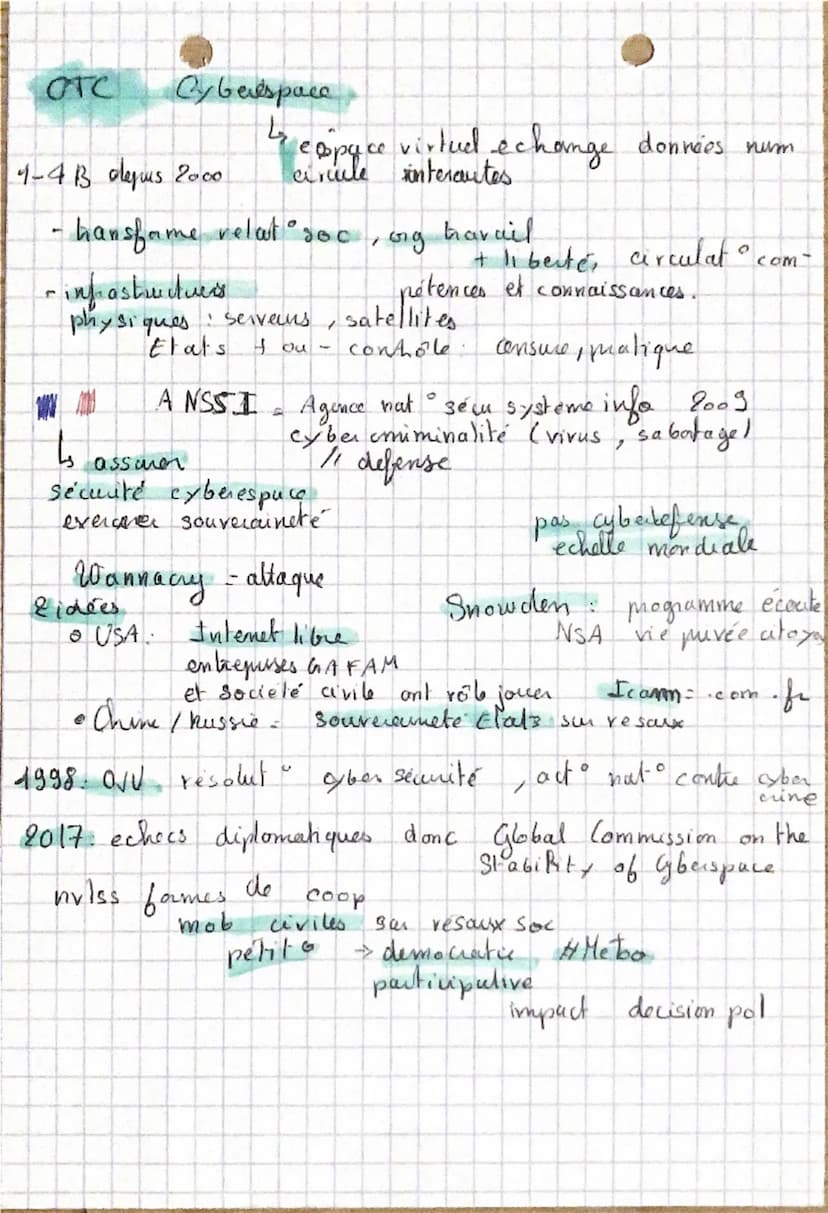 OTC Cyberéspace
↳ espace virtuel echange données num
1-4 B depuis 2000 circule internautes
- transforme relat° soc, org travail
+ liberté, circulat° com-
- infrastructures pétences et connaissances.
physiques : serveurs, satellites
Etats + ou - contrôle : censure, pratique
ANSSI = Agence nat° sécu système info 2009
cyber criminalité (virus, sabotage)
↳ assurer // defense
sécurité cyberespace
exercer souveraineté
pas cyberdefense
echelle mondiale
Wannacry = attaque
2 idées Snowden : programme écoute
• USA : Internet libre NSA vie privée citoyen
entreprises GAFAM
et société civile ont rôle jouer Icann = .com .fr
• Chine / Russie = souveraineté Etats sur resaux
1998 : ONU résolut° cyber sécurité, act° nat° contre cyber
crime
2017 : echecs diplomatiques donc Global Commission on the
Stability of Cyberspace
nvlss formes de coop
mob civiles sur résaux soc
petit° → democratie #Metoo
participative
impact decision pol